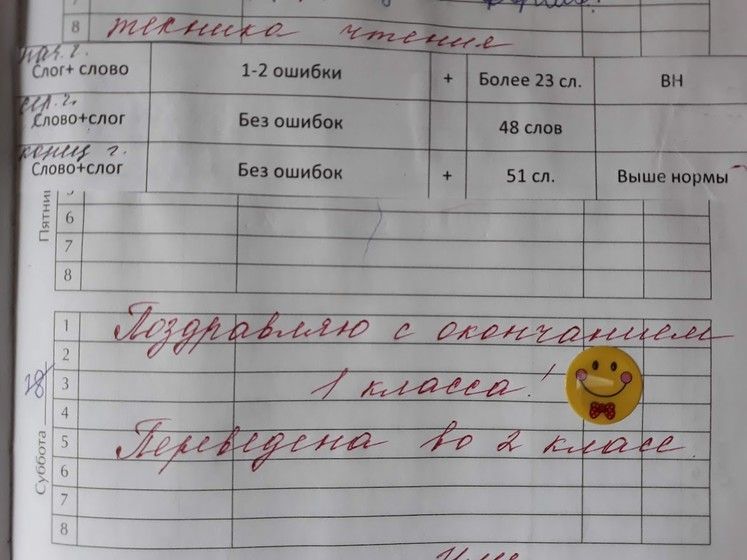 7
8 техника чтения
нач. г.
Слог+ слово 1-2 ошибки + Более 23 сл. ВН
сер. г.
Слово+слог Без ошибок 48 слов
конец г.
Слово+слог Без ошибок + 51 сл. Выше нормы
6
7
8
1 Поздравляю с окончанием
2
3 1 класса!
4
5 Переведена во 2 класс
6
7
8
Суббота